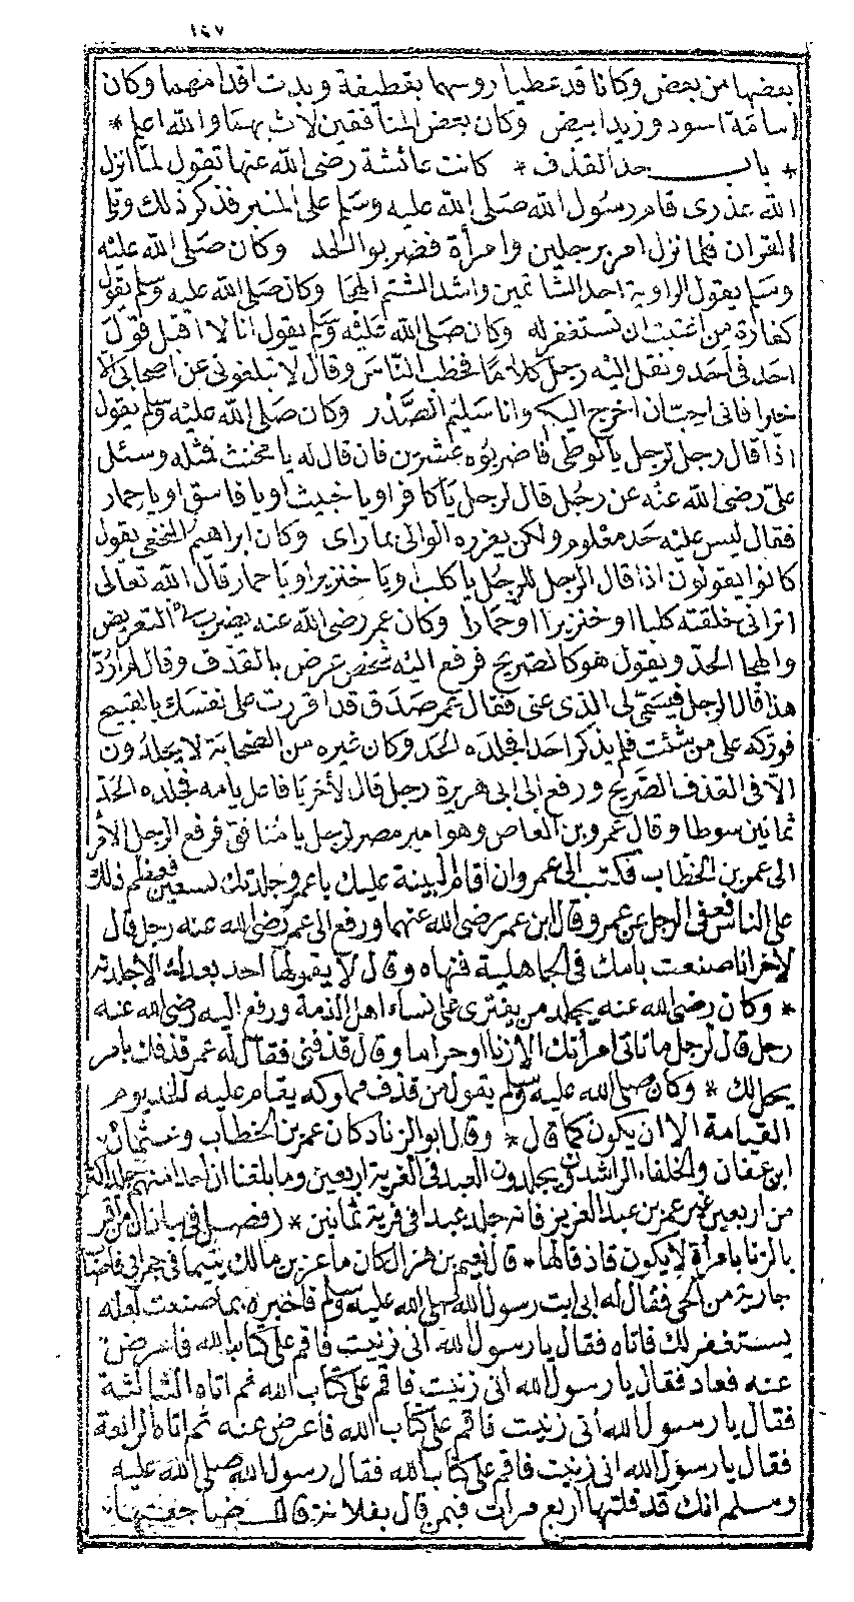 ١٤٧
بعضها من بعض وكانا قد غطيا روسهما بقطيفة وبدت اقدامهما وكان
اسامة اسود وزيد ابيض وكان بعض المنافقين لاث بهما والله اعلم *
* باب حد القذف * كانت عائشة رضى الله عنها تقول لما انزل
الله عذرى قام رسول الله صلى الله عليه وسلم على المنبر فذكر ذلك وتلا
القران فلما نزل امر برجلين وامرأة فضربوا الحد وكان صلى الله عليه
وسلم يقول الراوية احد الشاتمين واشد الشتم الهجا وكان صلى الله عليه وسلم يقول
كفارة من اغتبت ان تستغفر له وكان صلى الله عليه وسلم يقول انا لا اقبل قول
احد فى احد ونقل اليه رجل كلاما فخطب الناس وقال لا تبلغونى عن اصحابى الا
خيرا فانى احب ان اخرج اليكم وانا سليم الصدر وكان صلى الله عليه وسلم يقول
اذا قال رجل لرجل يا لوطى فاضربوه عشرين فان قال له يا مخنث فمثله وسئل
على رضى الله عنه عن رجل قال لرجل يا كافر او يا خبيث او يا فاسق او يا حمار
فقال ليس عليه حد معلوم ولكن يعزره الوالى بما راى وكان ابراهيم النخعى يقول
كانوا يقولون اذا قال الرجل للرجل يا كلب او يا خنزير او يا حمار قال الله تعالى
اترانى خلقته كلبا او خنزيرا او حمارا وكان عمر رضى الله عنه يضرب فى التعريض
والهجا الحد ويقول هو كالصريح فرفع اليه شخص عرض بالقذف وقال لم ارد
هذا قال الرجل فيسمى لى الذى عنى فقال عمر صدق قد اقررت على نفسك بالقبيح
فوركه على من شئت فلم يذكر احدا فجلده الحد وكان غيره من الصحابة لا يجلدون
الا فى القذف الصريح ورفع الى ابى هريرة رجل قال لأخر يا فاعل بامه فجلده الحد
ثمانين سوطا وقال عمرو بن العاص وهو امير مصر لرجل يا منافق فرفع الرجل الأمر
الى عمر بن الخطاب فكتب الى عمرو ان اقام البينة عليك يا عمرو جلدتك تسعين فعظم ذلك
على الناس فعفى الرجل عن عمرو وقال ابن عمر رضى الله عنهما ورفع الى عمر رضى الله عنه رجل قال
لأخر انا صنعت بامك فى الجاهلية فنهاه وقال لا يقولها احد بعدك الا جلدته
* وكان رضى الله عنه يجلد من يفترى على نساء اهل الذمة ورفع اليه رضى الله عنه
رجل قال لرجل ما تاتى امرأتك الا زنا او حراما وقال قذفنى فقال له عمر قذفك بامر
يحل لك * وكان صلى الله عليه وسلم يقول من قذف مملوكه يقام عليه الحد يوم
القيامة الا ان يكون كما قال * وقال ابو الزناد كان عمر بن الخطاب وعثمان
ابن عفان والخلفاء الراشدون يجلدون العبد فى الفرية اربعين وما بلغنا ان احدا منهم جلد اكثر
من اربعين غير عمر بن عبد العزيز فانه جلد عبدا فى فرية ثمانين * (فصل فى بيان ان من اقر
بالزنا بامرأة لا يكون قاذفا لها* قال نعيم بن هزال كان ماعز بن مالك يتيما فى حجر ابى فاصاب
جارية من الحى فقال له ابى ايت رسول الله صلى الله عليه وسلم فاخبره بما صنعت لعله
يستغفر لك فاتاه فقال يا رسول الله انى زنيت فاقم على كتاب الله فاعرض
عنه فعاد فقال يا رسول الله انى زنيت فاقم على كتاب الله ثم اتاه الثالثة
فقال يا رسول الله انى زنيت فاقم على كتاب الله فأعرض عنه ثم اتاه الرابعة
فقال يا رسول الله انى زنيت فاقم على كتاب الله فقال رسول الله صلى الله عليه
وسلم انك قد قلتها اربع مرات فبمن قال بفلانة قال ضاجعتها